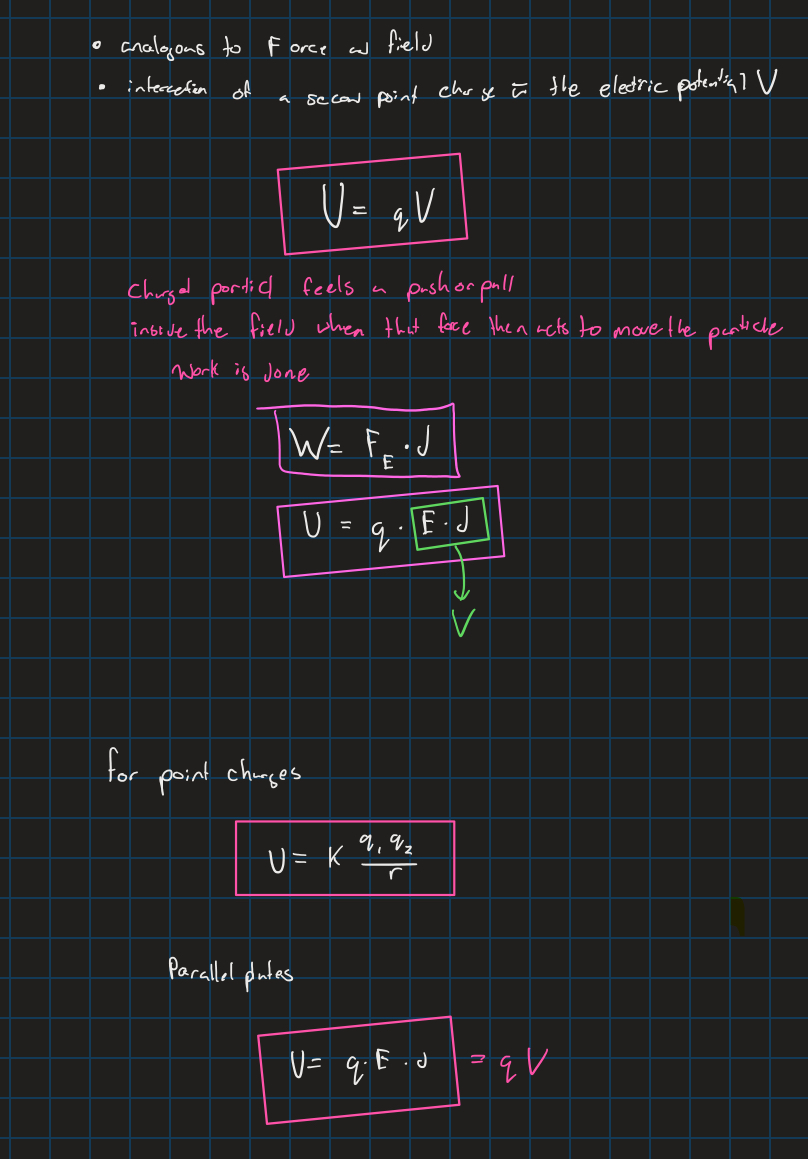 • analogous to Force and field
• interaction of a second point charge w the electric potential V
U = qV
Charged particl feels a push or pull
inside the field when that force then acts to move the particle
Work is done
W = F_E · d
U = q · E · d
V
for point charges
U = K q₁ q₂ / r
Parallel plates
U = q · E · d = qV